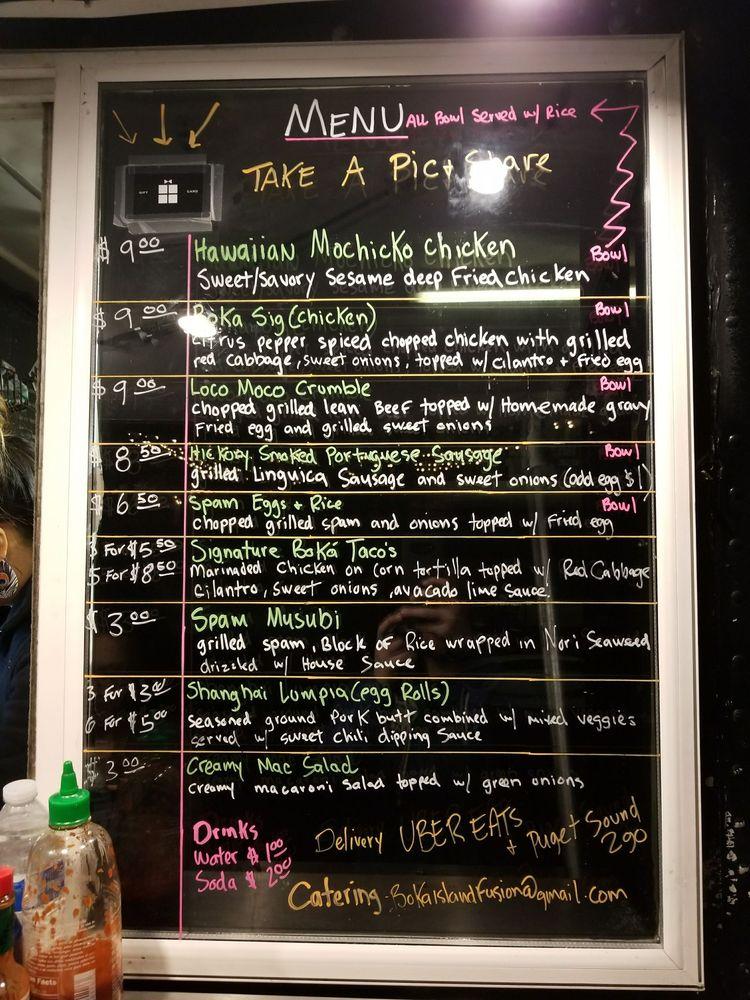 MENU ALL Bowl Served w/ Rice
TAKE A Pic + Share
GIFT CARD
$9.00 Hawaiian Mochicko chicken Bowl
Sweet/Savory Sesame deep Fried chicken
$9.00 BoKa Sig (chicken) Bowl
citrus pepper spiced chopped chicken with grilled
red cabbage, sweet onions, topped w/ cilantro + Fried egg
$9.00 Loco Moco Crumble Bowl
chopped grilled lean Beef topped w/ Homemade gravy
Fried egg and grilled sweet onions
$8.50 Hickory Smoked Portuguese Sausage Bowl
grilled Linguica Sausage and sweet onions (add egg $1)
$6.50 Spam Eggs + Rice Bowl
chopped grilled spam and onions topped w/ Fried egg
3 For $5.50 Signature BoKa Taco's
5 For $8.50 Marinaded Chicken on corn tortilla topped w/ Red Cabbage
cilantro, sweet onions, avacado lime sauce.
$3.00 Spam Musubi
grilled spam, Block of Rice wrapped in Nori Seaweed
drizzled w/ House Sauce
3 For $3.00 Shanghai Lumpia (egg Rolls)
6 For $5.00 seasoned ground Pork butt combined w/ mixed veggies
served w/ sweet chili dipping Sauce
$3.00 Creamy Mac Salad
creamy macaroni salad topped w/ green onions
Drinks
Water $1.00
Soda $2.00
Delivery UBER EATS
+ Puget Sound
2go
Catering - BoKaIslandFusion@gmail.com